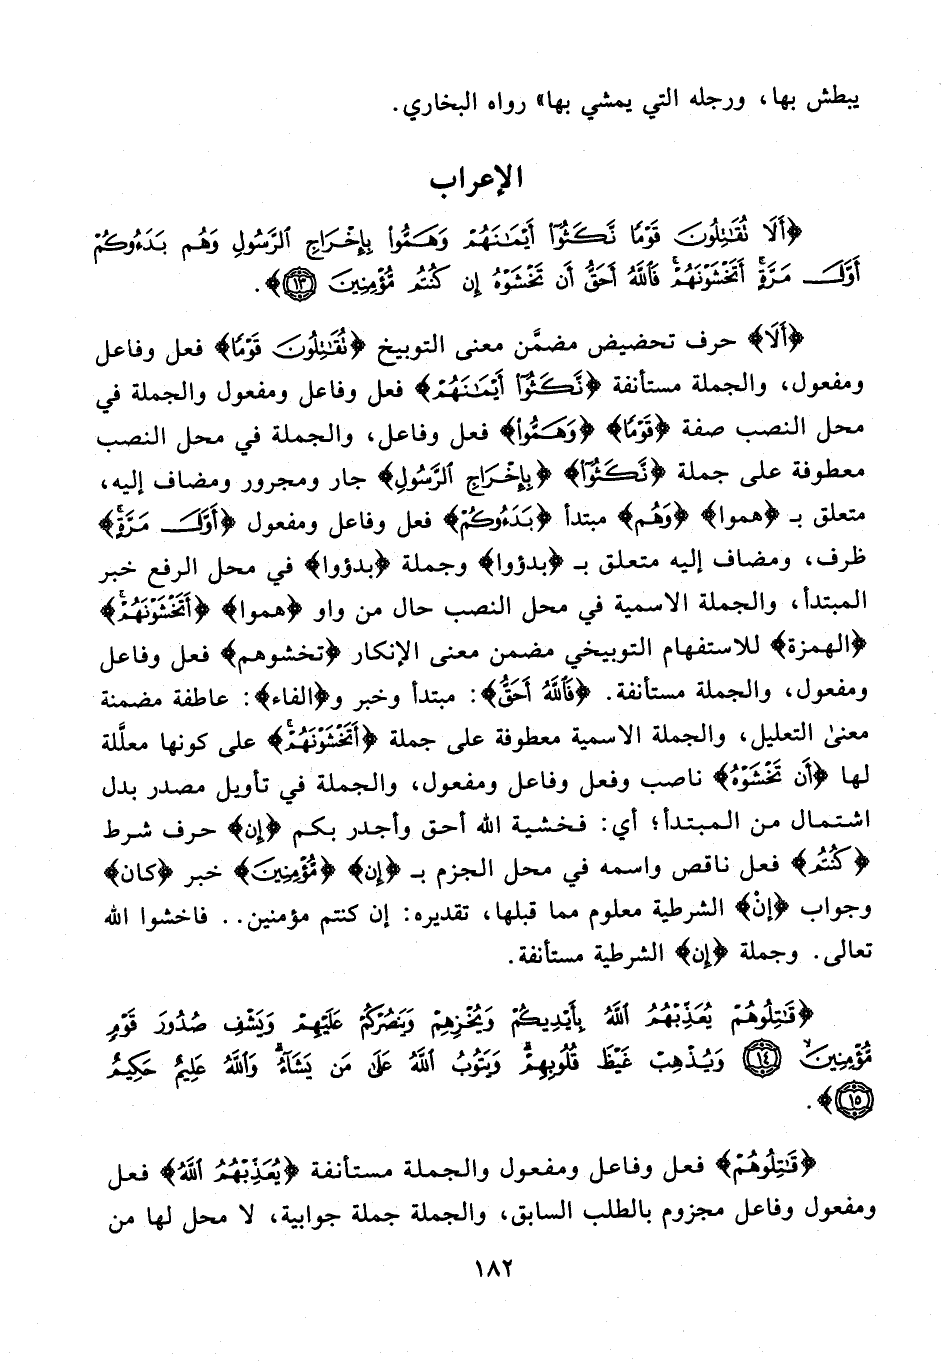 يبطش بها، ورجله التي يمشي بها» رواه البخاري.
الإعراب
﴿أَلَا نُقَٰتِلُونَ قَوْمًا نَّكَثُوٓا۟ أَيْمَٰنَهُمْ وَهَمُّوا۟ بِإِخْرَاجِ ٱلرَّسُولِ وَهُم بَدَءُوكُمْ
أَوَّلَ مَرَّةٍ أَتَخْشَوْنَهُمْ فَٱللَّهُ أَحَقُّ أَن تَخْشَوْهُ إِن كُنتُم مُّؤْمِنِينَ ١٣﴾.
﴿أَلَا﴾ حرف تحضيض مضمَّن معنى التوبيخ ﴿نُقَٰتِلُونَ قَوْمًا﴾ فعل وفاعل
ومفعول، والجملة مستأنفة ﴿نَّكَثُوٓا۟ أَيْمَٰنَهُمْ﴾ فعل وفاعل ومفعول والجملة في
محل النصب صفة ﴿قَوْمًا﴾ ﴿وَهَمُّوا۟﴾ فعل وفاعل، والجملة في محل النصب
معطوفة على جملة ﴿نَّكَثُوٓا۟﴾ ﴿بِإِخْرَاجِ ٱلرَّسُولِ﴾ جار ومجرور ومضاف إليه،
متعلق بـ ﴿هموا﴾ ﴿وَهُم﴾ مبتدأ ﴿بَدَءُوكُمْ﴾ فعل وفاعل ومفعول ﴿أَوَّلَ مَرَّةٍ﴾
ظرف، ومضاف إليه متعلق بـ ﴿بدؤوا﴾ وجملة ﴿بدؤوا﴾ في محل الرفع خبر
المبتدأ، والجملة الاسمية في محل النصب حال من واو ﴿هموا﴾ ﴿أَتَخْشَوْنَهُمْ﴾
﴿الهمزة﴾ للاستفهام التوبيخي مضمن معنى الإنكار ﴿تخشوهم﴾ فعل وفاعل
ومفعول، والجملة مستأنفة. ﴿فَٱللَّهُ أَحَقُّ﴾: مبتدأ وخبر و﴿الفاء﴾: عاطفة مضمنة
معنىٰ التعليل، والجملة الاسمية معطوفة على جملة ﴿أَتَخْشَوْنَهُمْ﴾ على كونها معلَّلة
لها ﴿أَن تَخْشَوْهُ﴾ ناصب وفعل وفاعل ومفعول، والجملة في تأويل مصدر بدل
اشتمال من المبتدأ؛ أي: فخشية الله أحق وأجدر بكم ﴿إِن﴾ حرف شرط
﴿كُنتُم﴾ فعل ناقص واسمه في محل الجزم بـ ﴿إِن﴾ ﴿مُّؤْمِنِينَ﴾ خبر ﴿كان﴾
وجواب ﴿إنْ﴾ الشرطية معلوم مما قبلها، تقديره: إن كنتم مؤمنين.. فاخشوا الله
تعالى. وجملة ﴿إن﴾ الشرطية مستأنفة.
﴿قَٰتِلُوهُمْ يُعَذِّبْهُمُ ٱللَّهُ بِأَيْدِيكُمْ وَيُخْزِهِمْ وَيَنصُرْكُمْ عَلَيْهِمْ وَيَشْفِ صُدُورَ قَوْمٍ
مُّؤْمِنِينَ ١٤ وَيُذْهِبْ غَيْظَ قُلُوبِهِمْ وَيَتُوبُ ٱللَّهُ عَلَىٰ مَن يَشَآءُ وَٱللَّهُ عَلِيمٌ حَكِيمٌ
١٥﴾.
﴿قَٰتِلُوهُمْ﴾ فعل وفاعل ومفعول والجملة مستأنفة ﴿يُعَذِّبْهُمُ ٱللَّهُ﴾ فعل
ومفعول وفاعل مجزوم بالطلب السابق، والجملة جملة جوابية، لا محل لها من
١٨٢